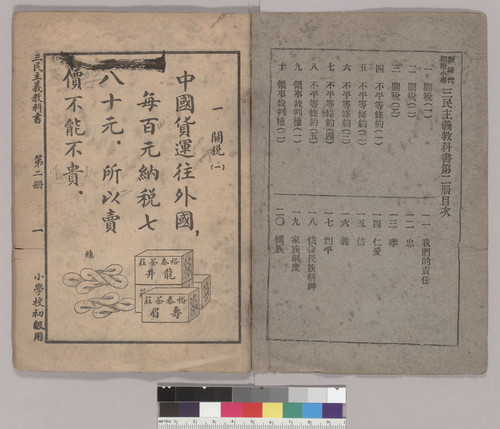 新時代
初級小學
三民主義教科書第二冊目次
一 關稅(一)
二 關稅(二)
三 關稅(三)
四 不平等條約(一)
五 不平等條約(二)
六 不平等條約(三)
七 不平等條約(四)
八 不平等條約(五)
九 領事裁判權(一)
十 領事裁判權(二)
一一 我們的責任
一二 忠
一三 孝
一四 仁愛
一五 信
一六 義
一七 和平
一八 恢復民族精神
一九 家族制度
二〇 國族
一 關稅(一)
中國貨運往外國,
每百元納稅七
八十元.所以賣
價不能不貴.
絲
裕泰茶莊
龍井
裕泰茶莊
壽眉
三民主義教科書 第二冊 一 小學校初級用